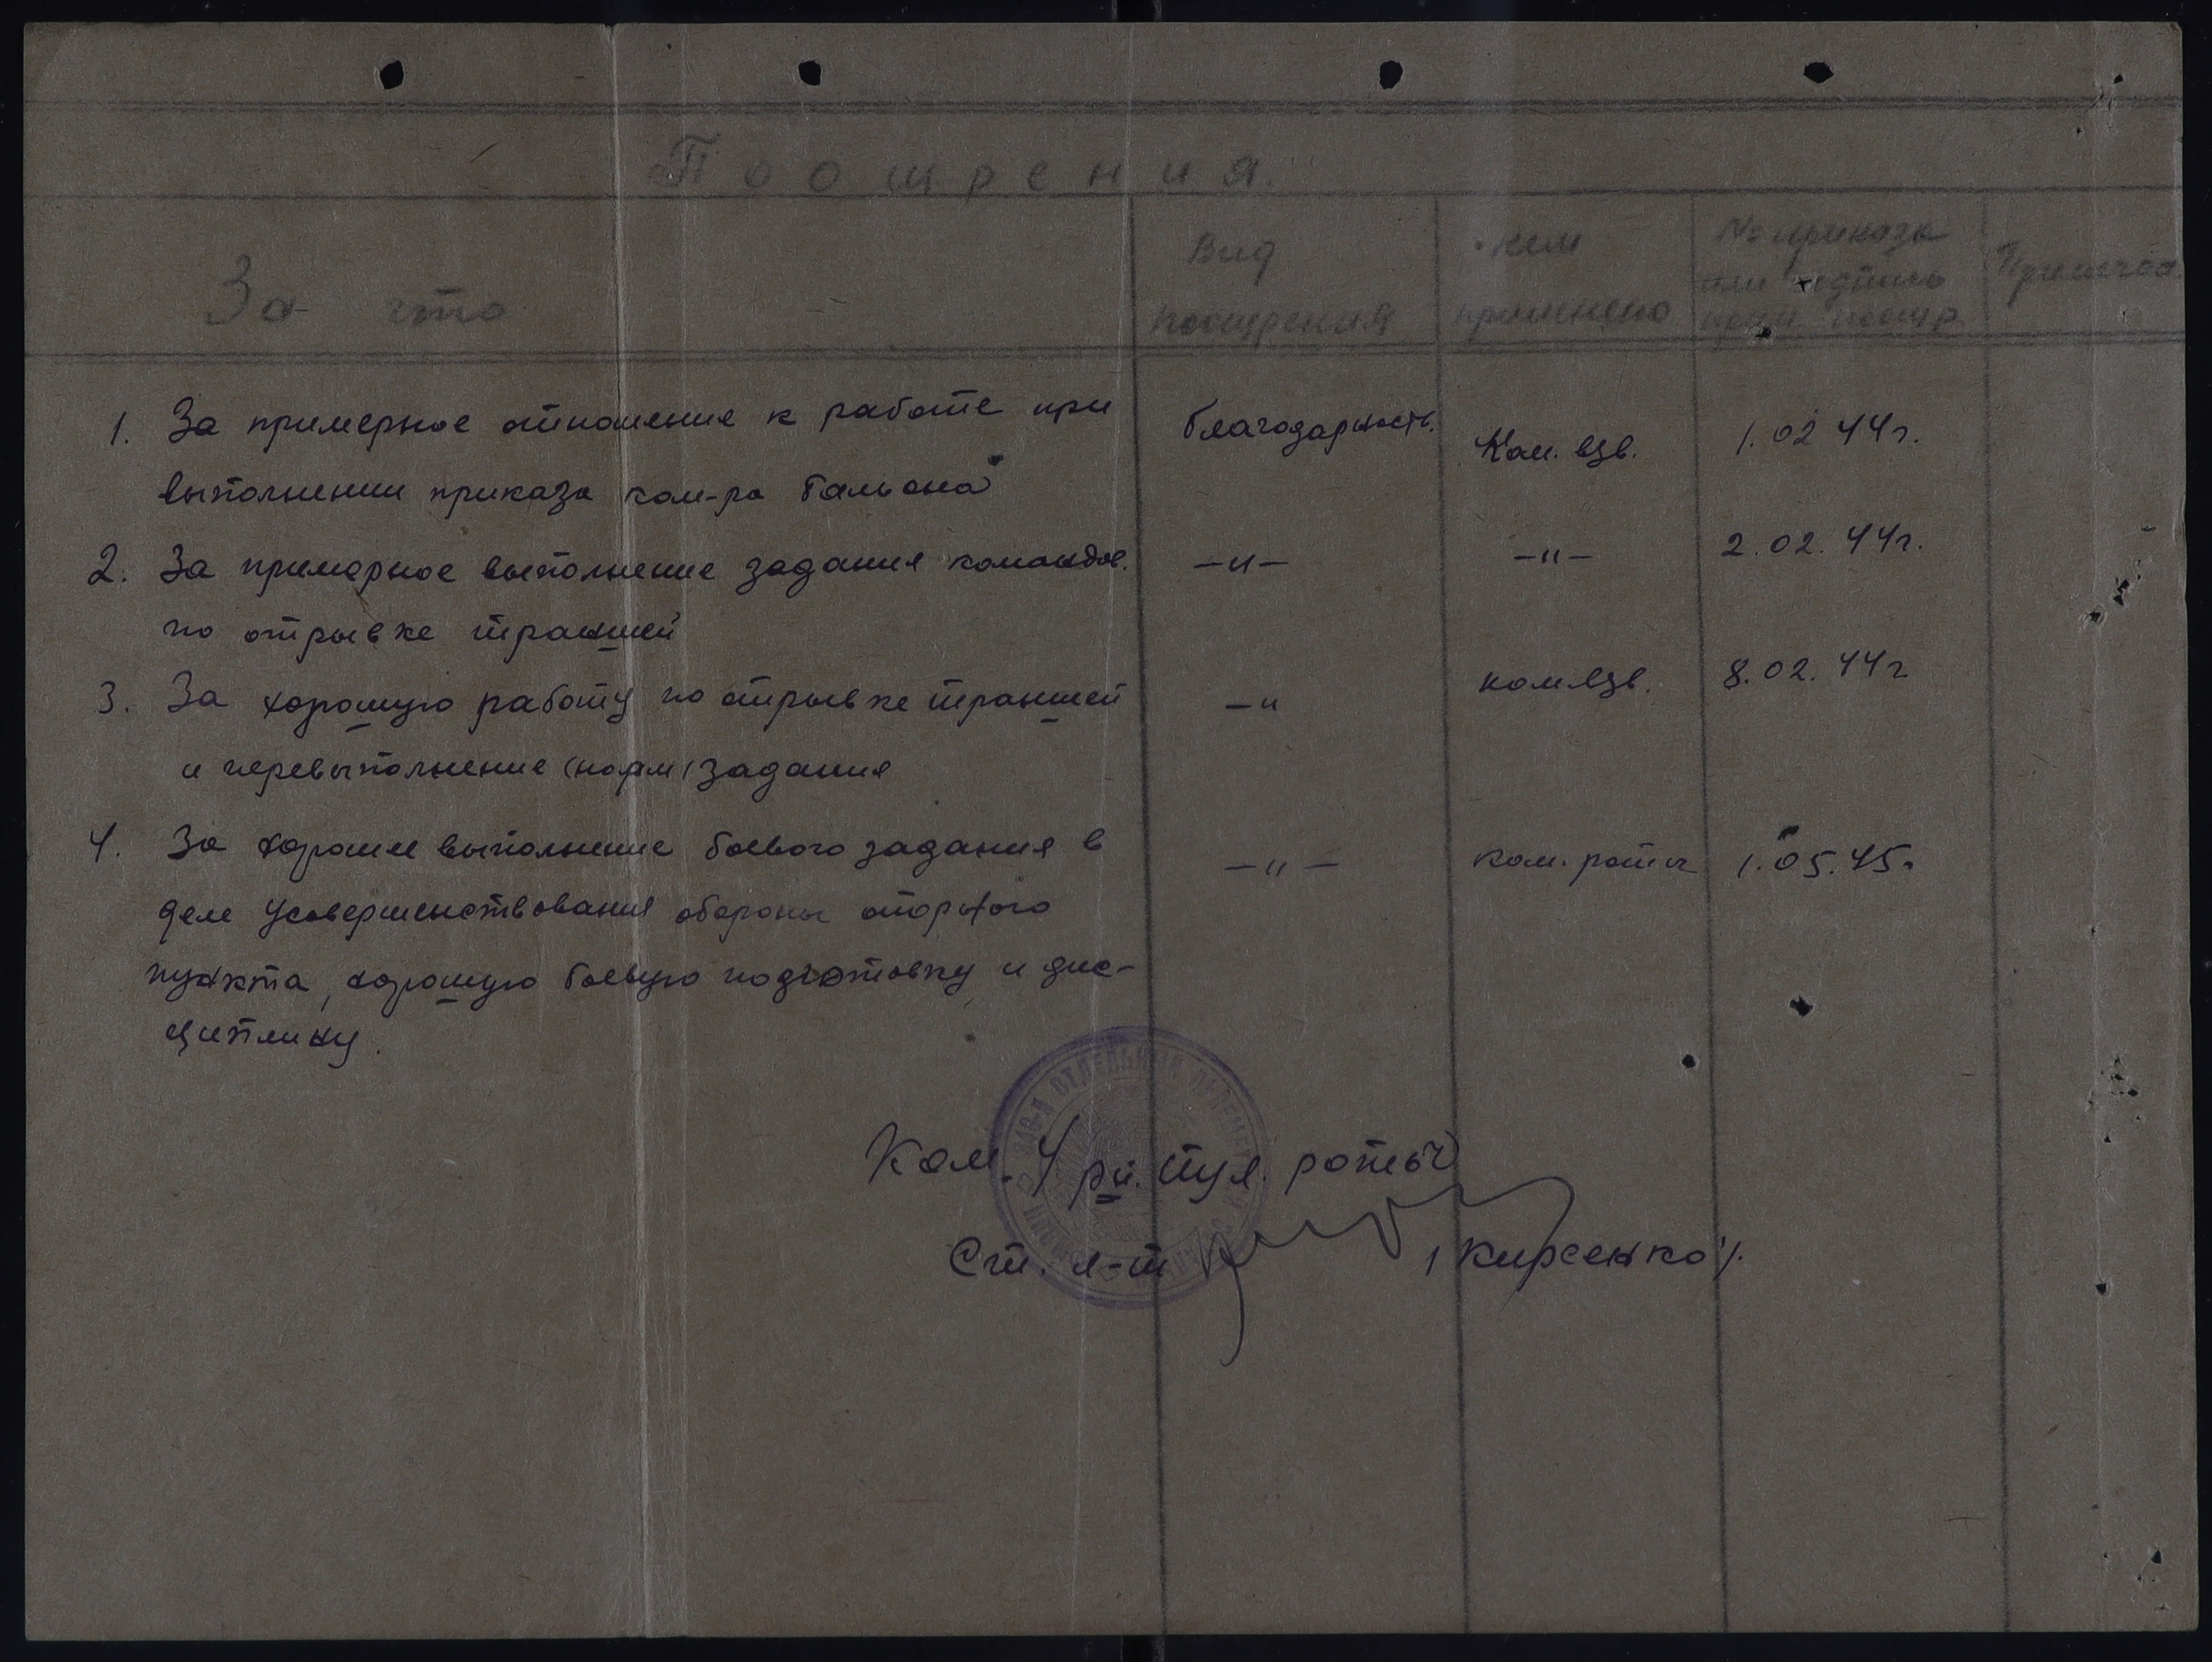 „Поощрения."
За что
Вид
поощрения
Кем
применено
№ приказа
или подпись
прим. поощр.
Примечан.
1. За примерное отношение к работе при
выполнении приказа ком-ра бальона
благодарность.
Ком. взв.
1.02 44г.
2. За примерное выполнение задания командов.
по отрывке траншей
—"—
—"—
2.02.44г.
3. За хорошую работу по отрывке траншей
и перевыполнение (норм) задания
—"
ком. взв.
8.02.44г
4. За хорошее выполнение боевого задания в
деле усовершенствования обороны опорного
пункта, хорошую боевую подготовку и дис-
циплину.
—"—
ком. роты
1.05.45г
Ком. 4 ру. пул. роты
Ст. л-т
/Кирсенко/.